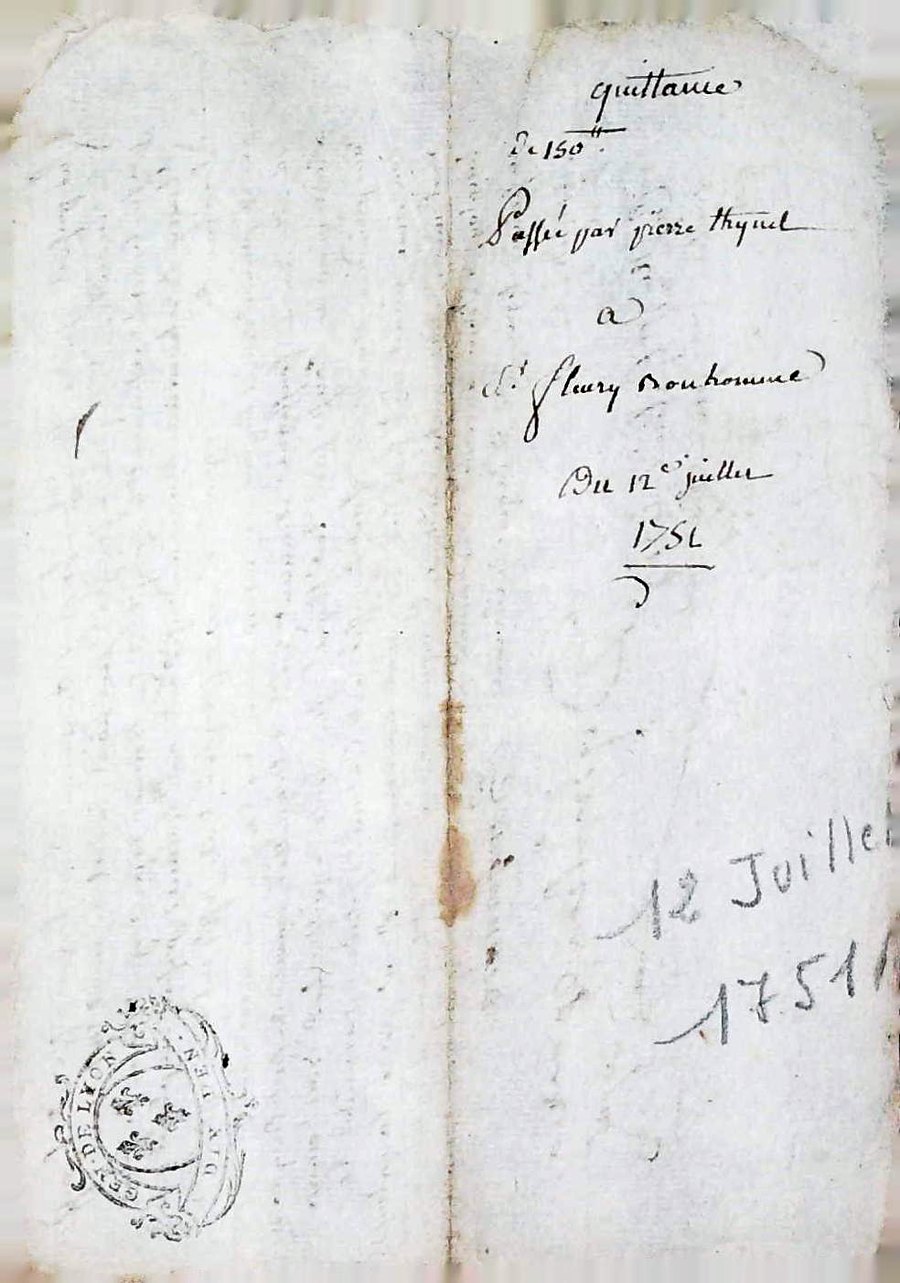 quittance
De 150ᵗᵗ
Passée par pierre thynel
a
Sʳ fleury Bonhomme
Du 12ᵉ juillet
1751
12 Juillet
1751
GEN · DE LYON
DEN